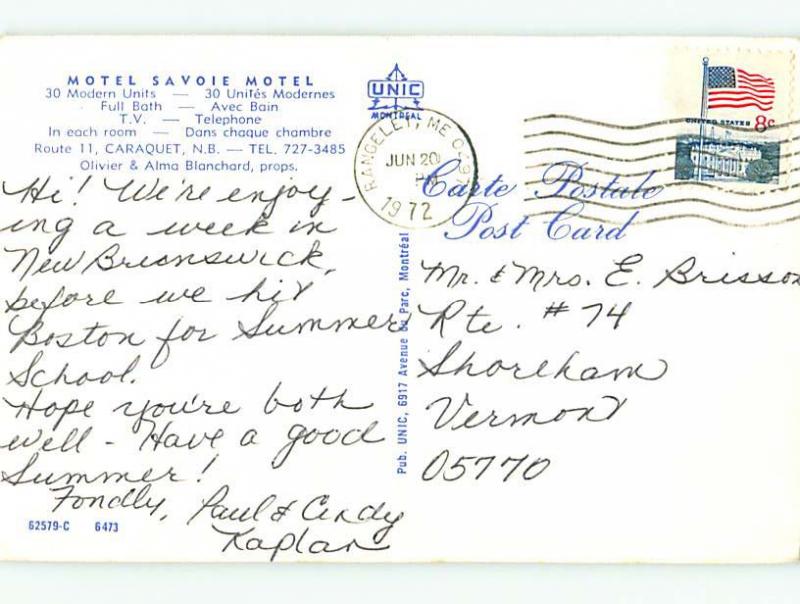 MOTEL SAVOIE MOTEL
30 Modern Units — 30 Unités Modernes
Full Bath — Avec Bain
T.V. — Telephone
In each room — Dans chaque chambre
Route 11, CARAQUET, N.B. — TEL. 727-3485
Olivier & Alma Blanchard, props.
UNIC
MONTREAL
RANGELEY, ME
JUN 20
PM
1972
UNITED STATES 8c
Carte Postale
Post Card
Hi! We're enjoy-
ing a week in
New Brunswick,
before we hit
Boston for Summer
School.
Hope you're both
well - Have a good
Summer!
Fondly, Paul & Cindy
Kaplan
Pub. UNIC, 6917 Avenue du Parc, Montréal
Mr. & Mrs. E. Brisson
Rte. #74
Shoreham
Vermont
05770
62579-C 6473